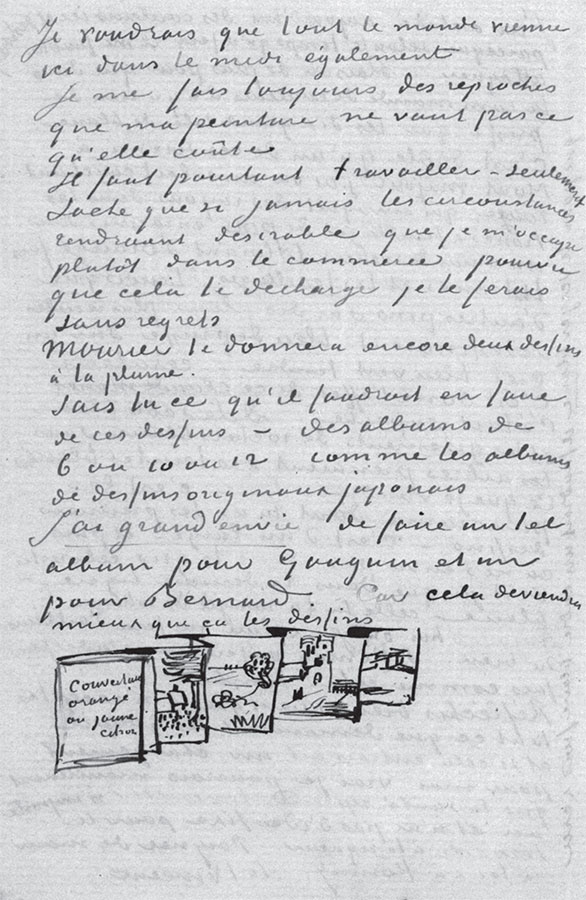 Je voudrais que tout le monde vienne
ici dans le midi également
Je me fais toujours des reproches
que ma peinture ne vaut pas ce
qu'elle coûte
Il faut pourtant travailler – seulement
Sache que si jamais les circonstances
rendraient desirable que je m'occupe
plutôt dans le commerce pourvu
que cela te decharge je le ferais
sans regrets
Mourier te donnera encore deux dessins
à la plume.
Sais tu ce qu'il faudrait en faire
de ces dessins – des albums de
6 ou 10 ou 12 comme les albums
de dessins originaux japonais
J'ai grand envie de faire un tel
album pour Gauguin et un
pour Bernard Car cela deviendra
mieux que ça les dessins
Couverture
orangé
ou jaune
citron